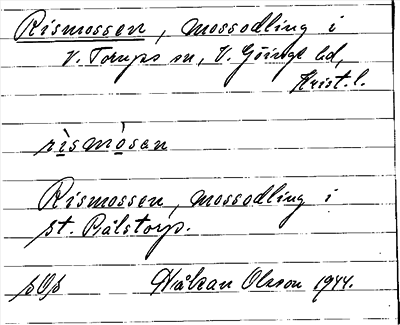 Rismossen, mossodling i
V. Torups sn, V. Göinge hd,
Krist. l.
rìsmòsan
Rismossen, mossodling i
st. Rålstorp.
pOp Håkan Olsson 1944.